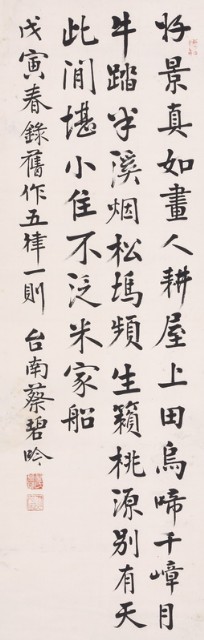 好景真如畫人耕屋上田烏啼千嶂月
牛踏半溪烟松塢頻生籟桃源別有天
此間堪小住不泛米家船
戊寅春錄舊作五律一則 台南蔡碧吟